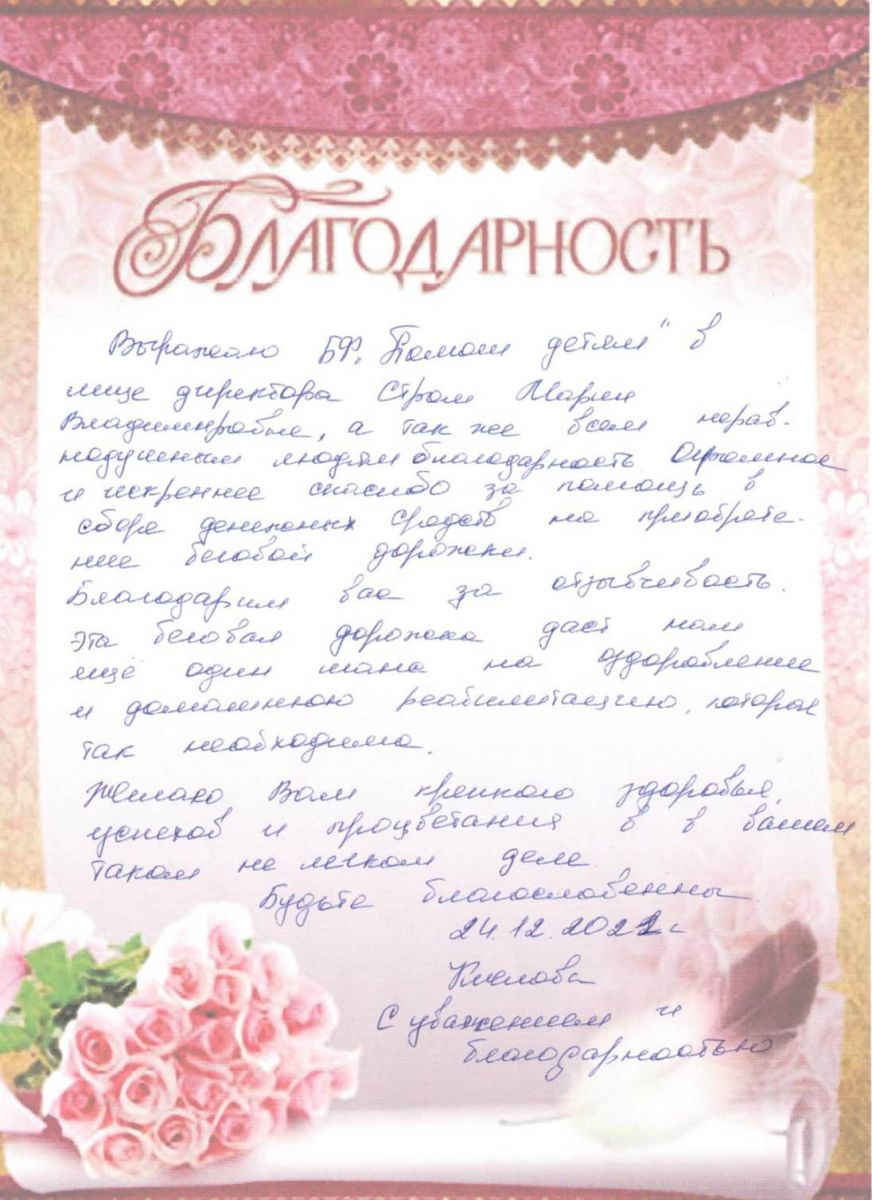 Благодарность
Выражаю БФ „Помощ детям" в
лице директора Стром Марии
Владимировне, а так же всем нерав-
нодушным людям благодарность. Огромное
и искреннее спасибо за помощь в
сборе денежных средств на приобрете-
ние беговой дорожки.
Благодарим вас за отзывчивость.
Эта беговая дорожка даст нам
ещё один шанс на оздоровление
и домашнюю реабилитацию, которая
так необходима.
Желаю Вам крепкого здоровья,
успехов и процветания в в вашем
таком не легком деле.
Будьте благословенны
24.12.2021 г
С уважением и
благодарностью